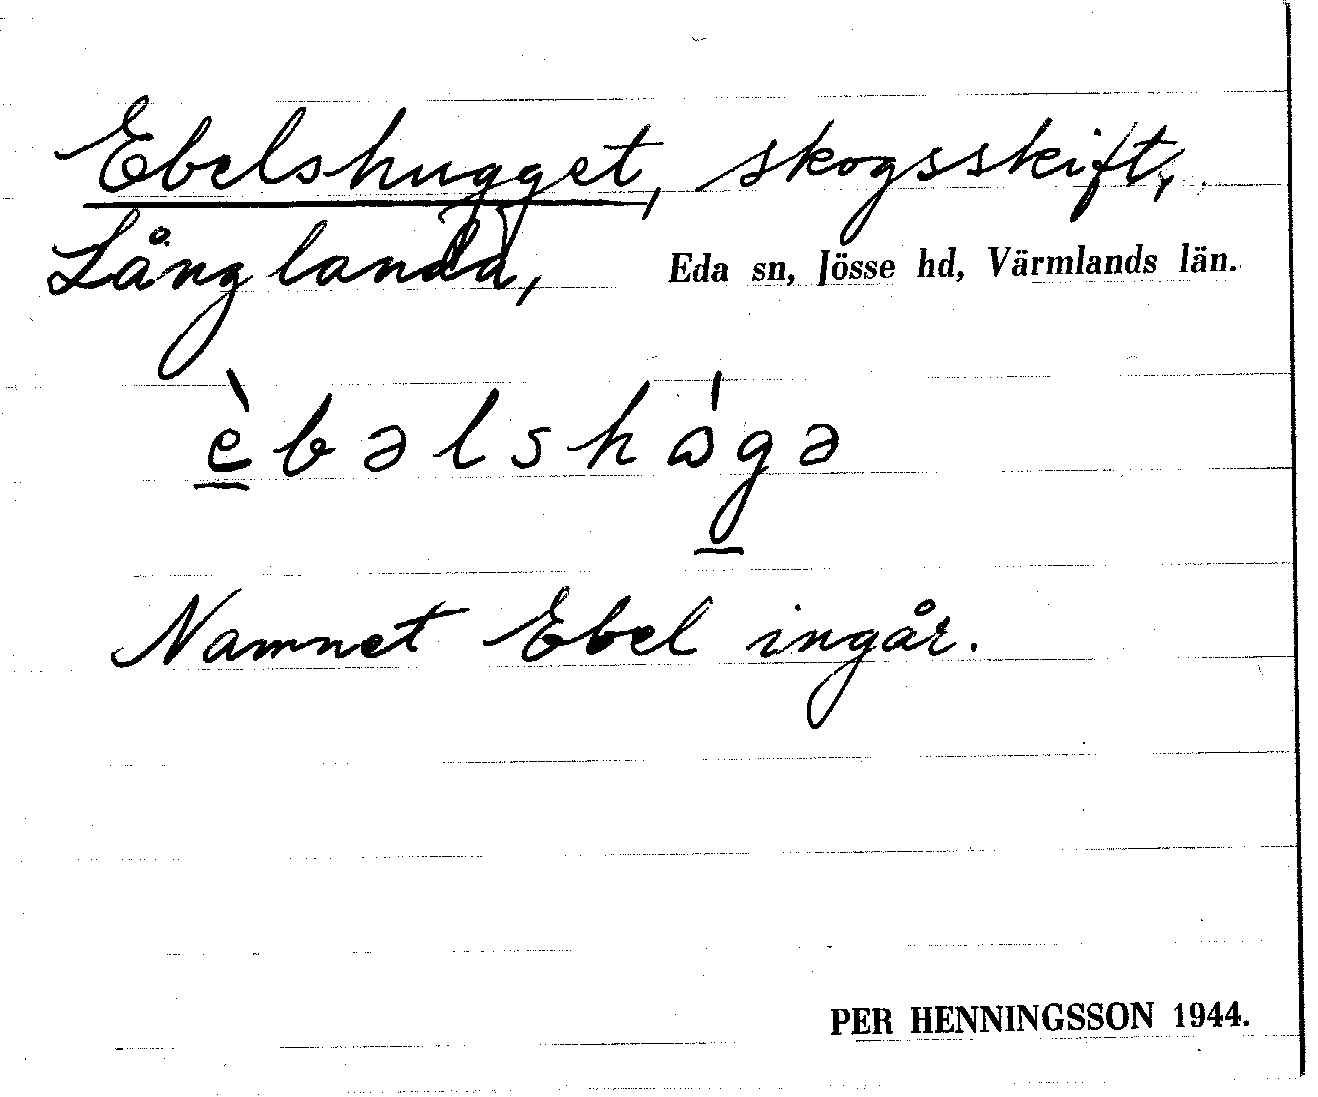 Ebelshugget, skogsskift,
Långlanda, Eda sn, Jösse hd, Värmlands län.
èbəlshágə
Namnet Ebel ingår.
PER HENNINGSSON 1944.